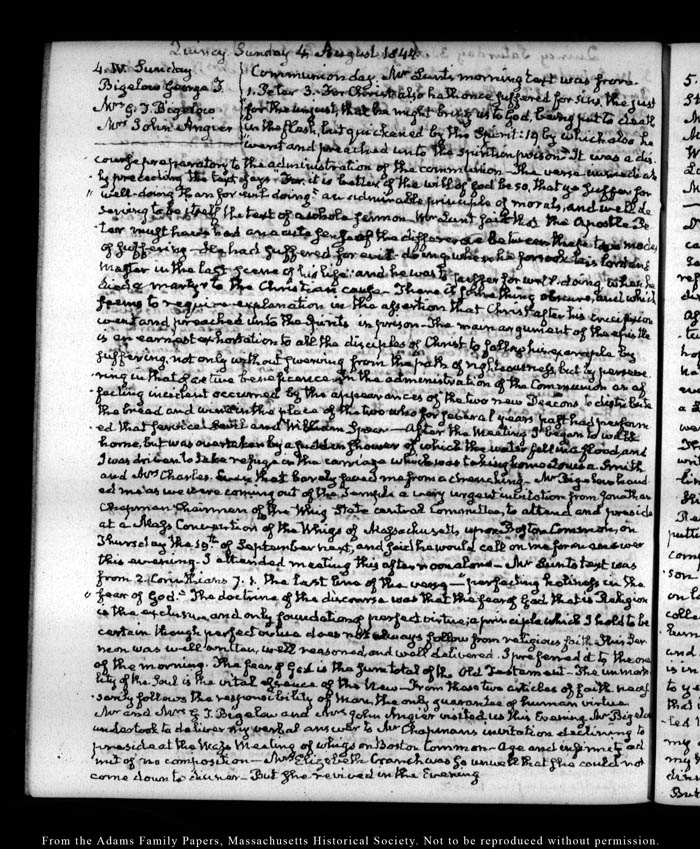 Quincy Sunday 4 August 1844.
4. IV. Sunday
Bigelow George T.
Mrs G. T Bigelow
Mrs John Angier
Communion day. Mr Lunt's morning text was from
1. Peter 3. For Christ also hath once suffered for sins, the just
for the unjust, that he might bring us to God, being put to death
in the flesh, but quickened by the Spirit: 19 by which also he
went and preached unto the spirits in prison. It was a dis-
course preparatory to the administration of the communion. The verse immediate-
ly preceding the text says "For it is better, if the will of God be so, that ye suffer for
well-doing than for evil doing." an admirable principle of morals, and well de-
serving to be itself the text of a whole sermon. Mr Lunt said that the Apostle Pe-
ter must have had an acute sense of the difference between these two modes
of suffering. He had suffered for evil-doing when he forsook his lord and
master in the last scene of his life: and he was to suffer for well-doing when he
died a martyr to the Christian cause. There is something obscure, and which
seems to require explanation in the assertion that Christ after his crucifixion
went and preached unto the spirits in prison. The main argument of the epistle
is an earnest exhortation to all the disciples of Christ to follow his example by
suffering not only without swerving from the path of righteousness, but by persever-
ing in that of active beneficence. In the administration of the Communion an af-
fecting incident occurred by the appearances of the two new Deacons to distribute
the bread and wine in the place of the two who for several years past had perform-
ed that service Savil and William Spear — After the meeting I began to walk
home, but was overtaken by a sudden shower of which the water fell in a flood, and
I was driven to take refuge in the carriage which was taking home Louisa Smith
and Mrs Charles. Even that barely saved me from a drenching. Mr Bigelow hand-
ed me as we were coming out of the Temple a very urgent invitation from Jonathan
Chapman Chairman of the Whig State central Committee, to attend and preside
at a Mass Convention of the Whigs of Massachusetts, upon Boston Common, on
Thursday the 19th of September next, and said he would call on me for an answer
this evening. I attended meeting this afternoon alone — Mr Lunt's text was
from 2. Corinthians 7. 1. the last line of the verse — perfecting holiness in the
fear of God." The doctrine of the discourse was that the fear of God that is Religion
is the exclusive and only foundation of perfect virtue; a principle which I hold to be
certain though perfect virtue does not always follow from religious faith. This Ser-
mon was well written, well reasoned, and well delivered. I preferred it to the one
of the morning. The fear of God is the sum total of the Old Testament — The immor-
tality of the Soul is the vital essence of the New — From these two articles of faith neces-
sarily follows the responsibility of Man the only guarantee of human virtue.
Mr and Mrs G. T Bigelow and Mrs John Angier visited us this Evening. Mr Bigelow
undertook to deliver my verbal answer to Mr Chapman's invitation declining to
preside at the Mass Meeting of whigs on Boston Common — Age and infirmity ad-
mit of no composition — Mrs Elizabeth Cranch was so unwell that she could not
come down to dinner — But she revived in the Evening
From the Adams Family Papers, Massachusetts Historical Society. Not to be reproduced without permission.